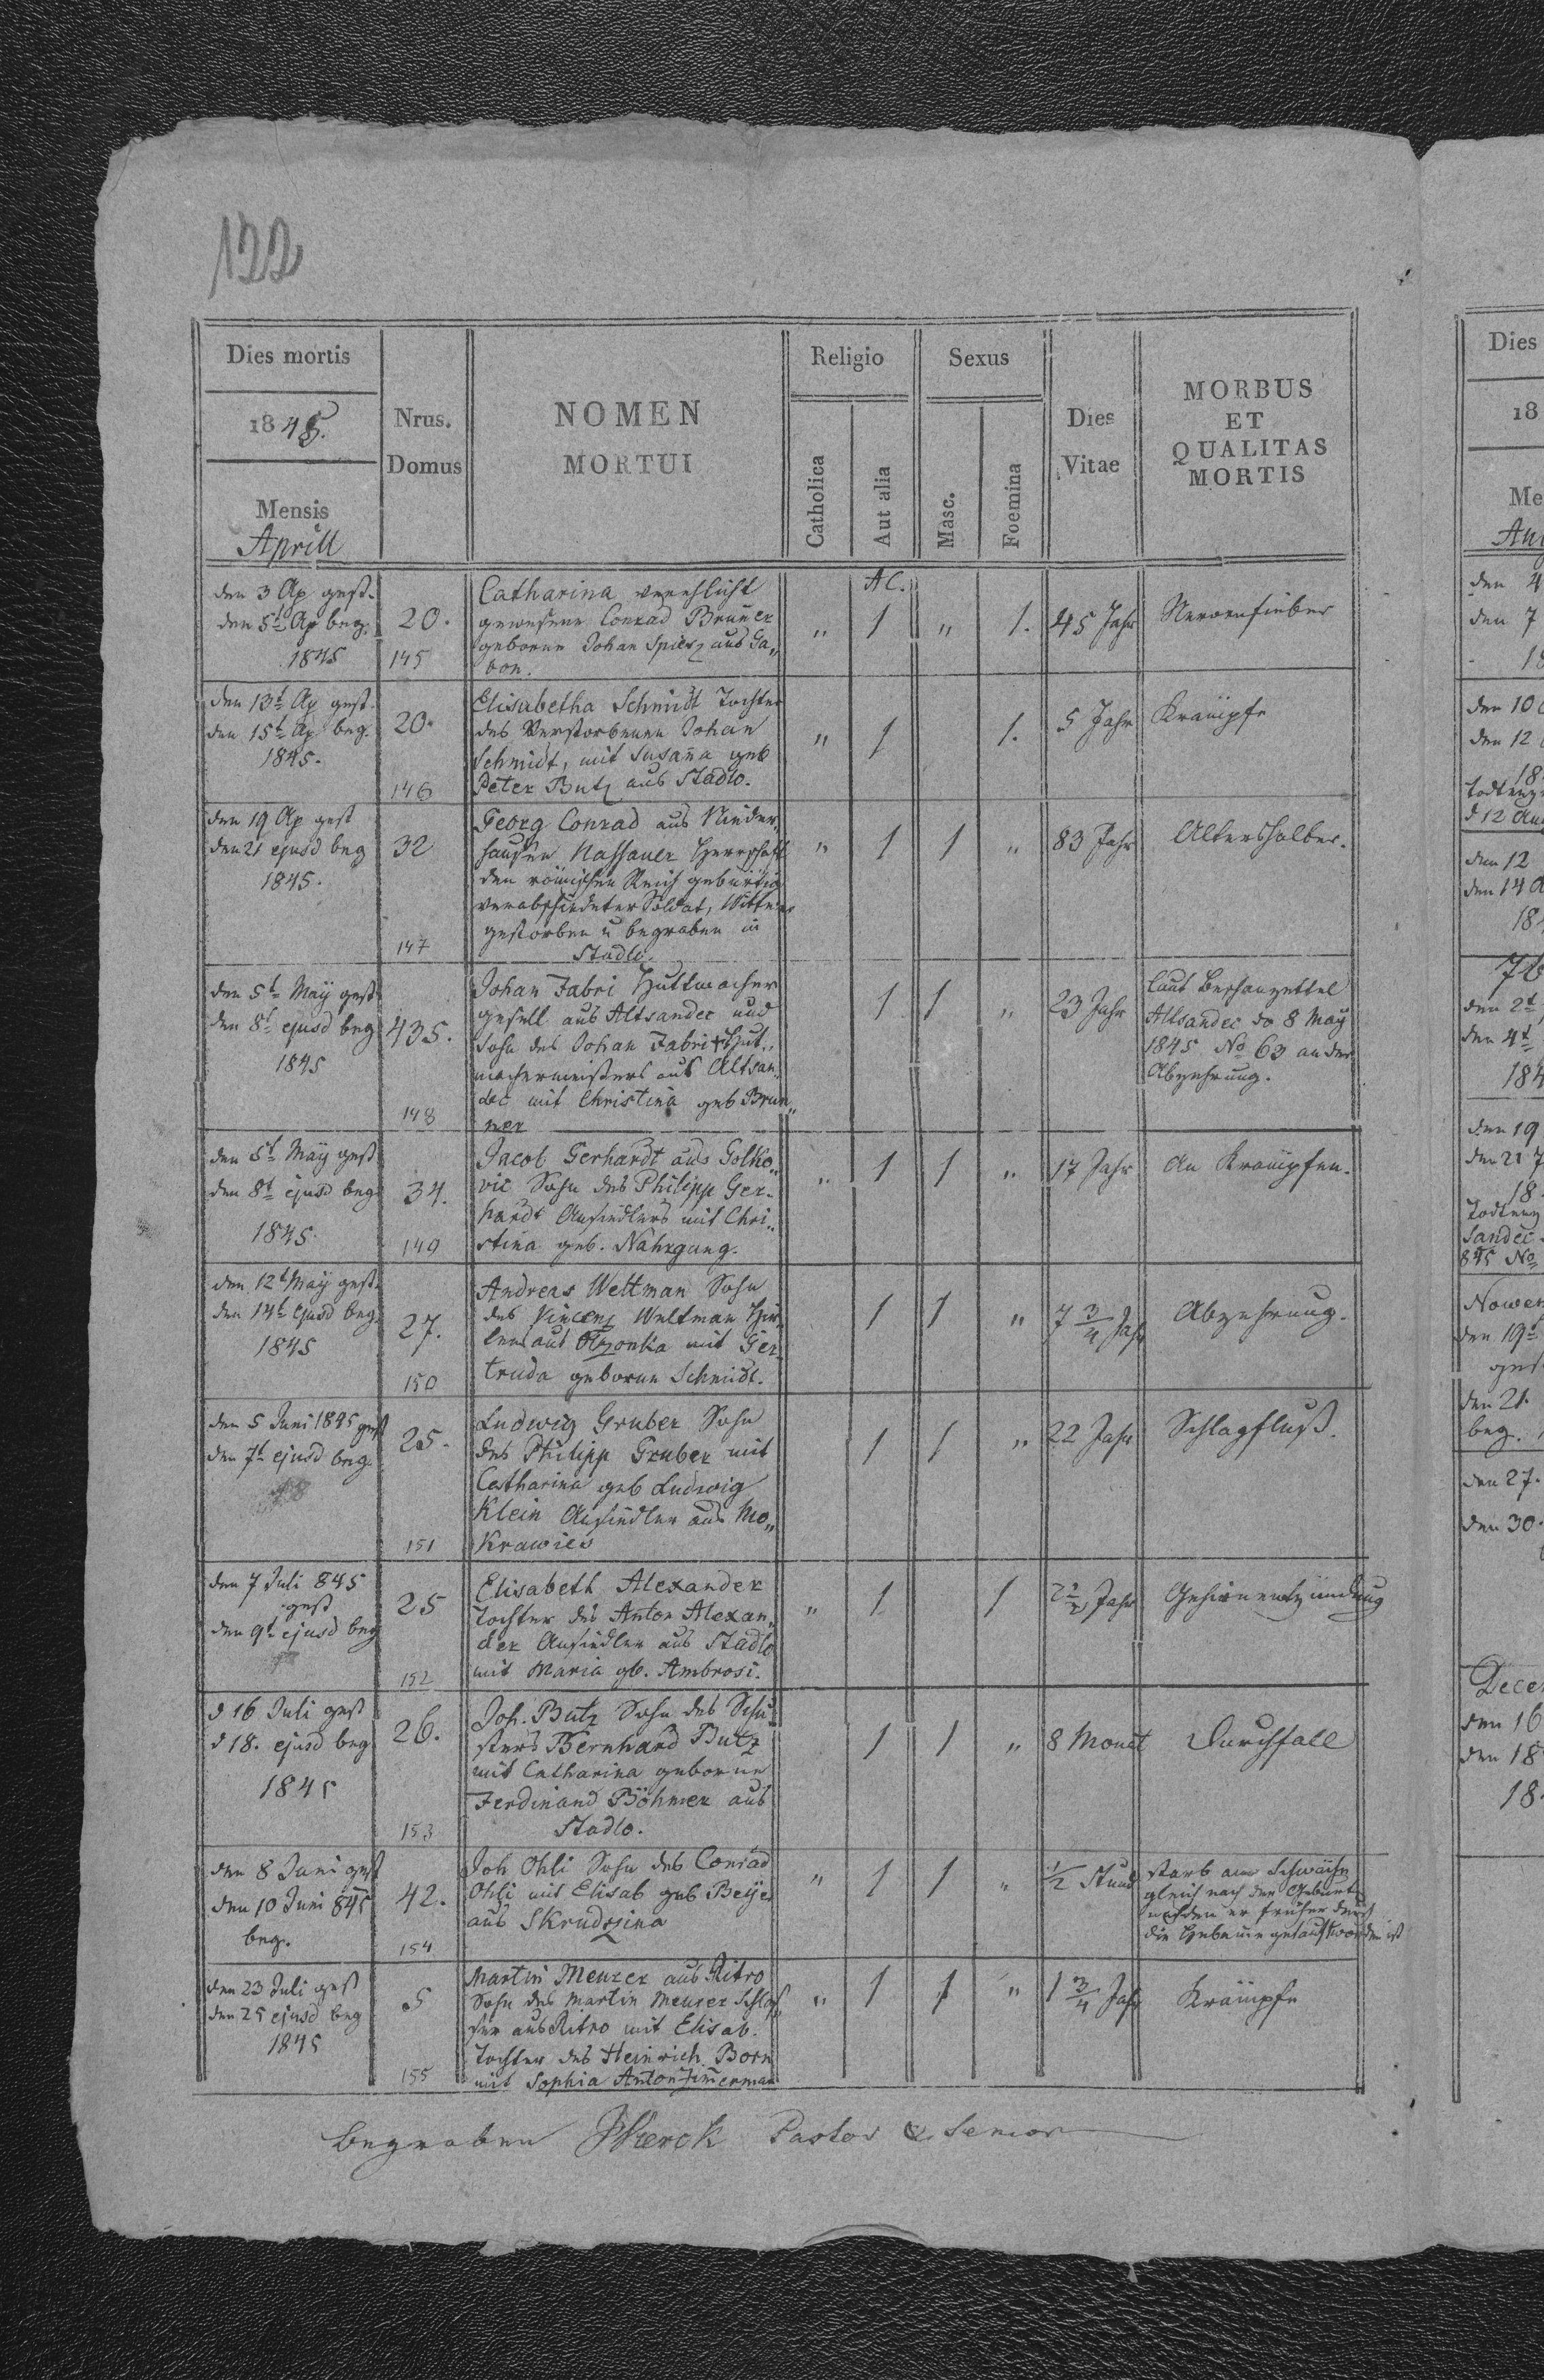 122
Dies mortis
1845.
Mensis
Aprill
Nrus.
Domus
NOMEN
MORTUI
Religio
Catholica
Aut alia
Sexus
Masc.
Foemina
Dies
Vitae
MORBUS
ET
QUALITAS
MORTIS
den 3 Ap gest.
den 5t Ap beg.
1845
20.
145
Catharina verehlicht
gewesene Conrad Bruner
geborne Johan Spiesz aus Ga„
bon.
„
A C.
1
„
1.
45 Jahr
Nervenfieber
den 13t Ap gest.
den 15t Ap beg.
1845.
20.
146
Elisabetha Schmidt Tochter
des Verstorbenen Johan
Schmidt, mit Susana geb
Peter Butz aus Stadlo.
„
1
1.
5 Jahr
Krämpfe
den 19 Ap gest
den 21 ejusd beg
1845.
32
147
Georg Conrad aus Nieder„
hausen Nassauer Herrschaft
den römischen Reich gebürtig
verabschiedeter Soldat, Wittwer
gestorben u begraben in
Stadlo.
„
1
1
„
83 Jahr
Altershalber.
den 5t May gest
den 8t ejusd beg
1845
435.
148
Johan Fabri Huttmacher
gesell aus Altsandec und
Sohn des Johan Fabri + Hut„
machermeisters aus Altsan„
dec mit Christina geb Brun„
ner
1
1
„
23 Jahr
laut Beschauzettel
Altsandec do 8 May
1845 No 63 an der
Abzehrung.
den 5t May gest
den 8t ejusd beg
1845.
34.
149
Jacob Gerhardt aus Golko„
vic Sohn des Philipp Ger„
hardt Ansiedlers mit Chri„
stina geb. Nahrgang.
„
1
1
„
17 Jahr
An Krämpfen.
den 12t May gest.
den 14t ejusd beg.
1845
27.
150
Andreas Weltman Sohn
des Vincenz Weltman
aus mit Ger„
truda geborne Schmidt.
1
1
„
7 3/4 Jahr
Abzehrung.
den 5 Juni 1845 gest
den 7t ejusd beg.
25.
151
Ludwig Gruber Sohn
des Philipp Gruber mit
Catharina geb Ludwig
Klein Ansiedler aus Mo„
krawies
1
1
„
22 Jahr
Schlagfluß.
den 7 Juli 845
gest
den 9t ejusd beg
25
152
Elisabeth Alexander
Tochter des Anton Alexan„
der Ansiedler aus Stadlo
mit Maria gb. Ambrosi.
„
1
1
2 1/2 Jahr
Gehirnentzündung
d 16 Juli gest
d 18. ejusd beg
1845
26.
153
Joh. Butz Sohn des Schu„
sters Bernhard Butz
mit Catharina geborne
Ferdinand Böhmer aus
Stadlo.
1
1
„
8 Monat
Durchfall
den 8 Juni gest
den 10 Juni 845
beg.
42.
154
Joh Ohli Sohn des Conrad
Ohli mit Elisab geb Beÿer
aus Skrudzina
„
1
1
„
1/2 Stund
starb aus Schwäche
gleich nach der Geburt
nachdem er früher durch
die Hebame getauft worden ist
den 23 Juli gest
den 25 ejusd beg
1845
5
155
Martin Meurer aus Ritro
Sohn des Martin Meurer Schlos„
ser aus Ritro mit Elisab.
Tochter des Heinrich Born
mit Sophia Anton Zimerman
„
1
1
„
1 3/4 Jahr
Krämpfe
begraben Pastor & Senior
Dies
18
Me
den 4
den 7
18
den 10
den 12
18
den 12
den 14 A
18
den 2t
den 4t
184
den 19
den 21 7
18
Sandec
845 No
Novem
den 19t
gest
den 21.
beg.
den 27.
den 30.
Decem
den 16
den 18
18